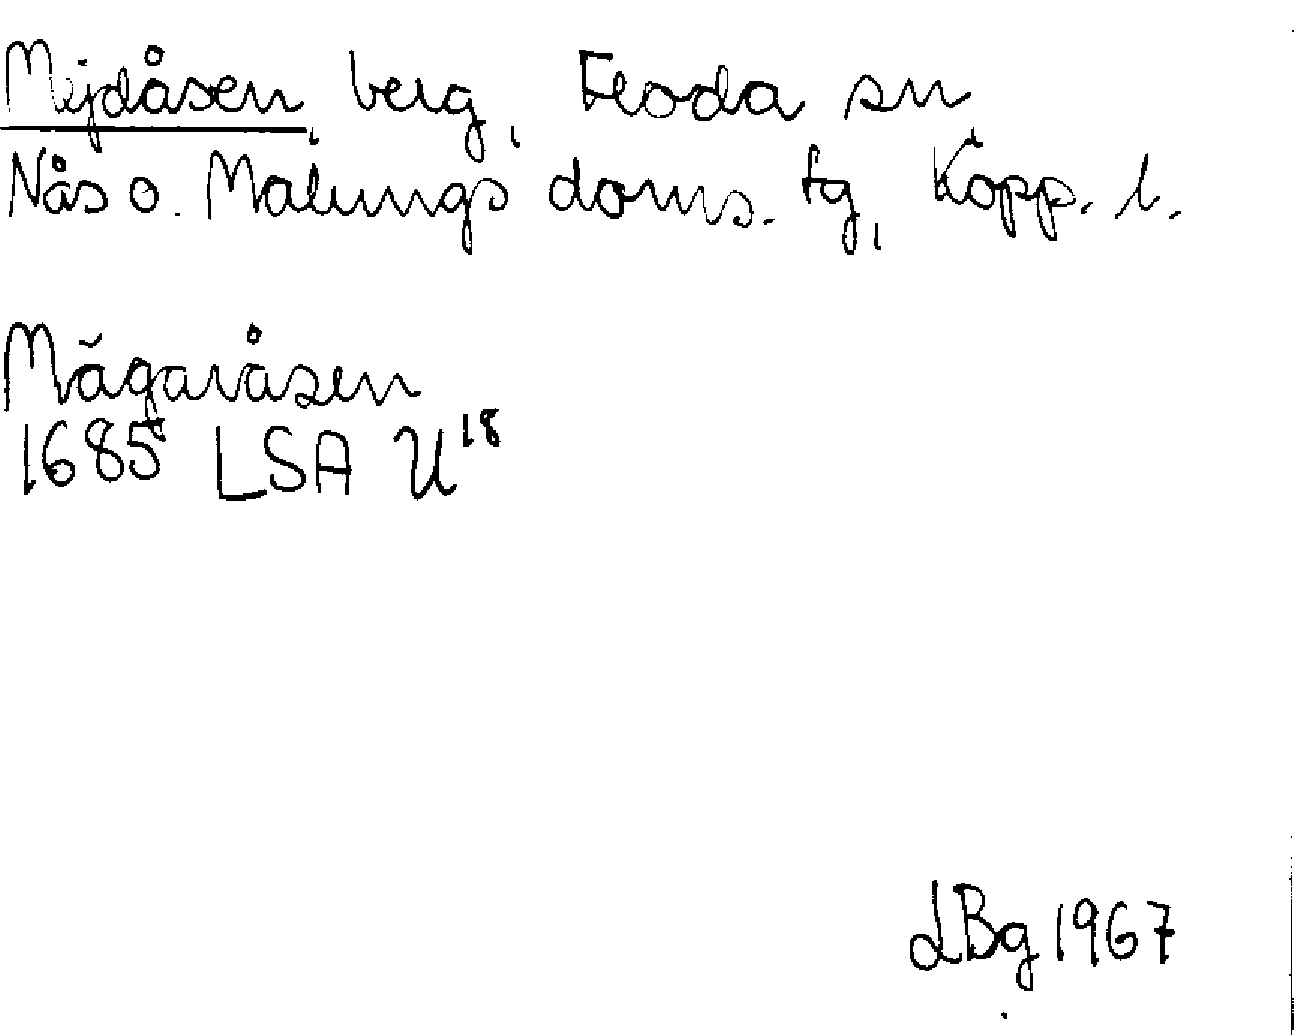 Mejdåsen, berg, Floda sn
Nås o. Malungs doms. tg, Kopp. l.
Mågaråsen
1685 LSA U18
LBg 1967